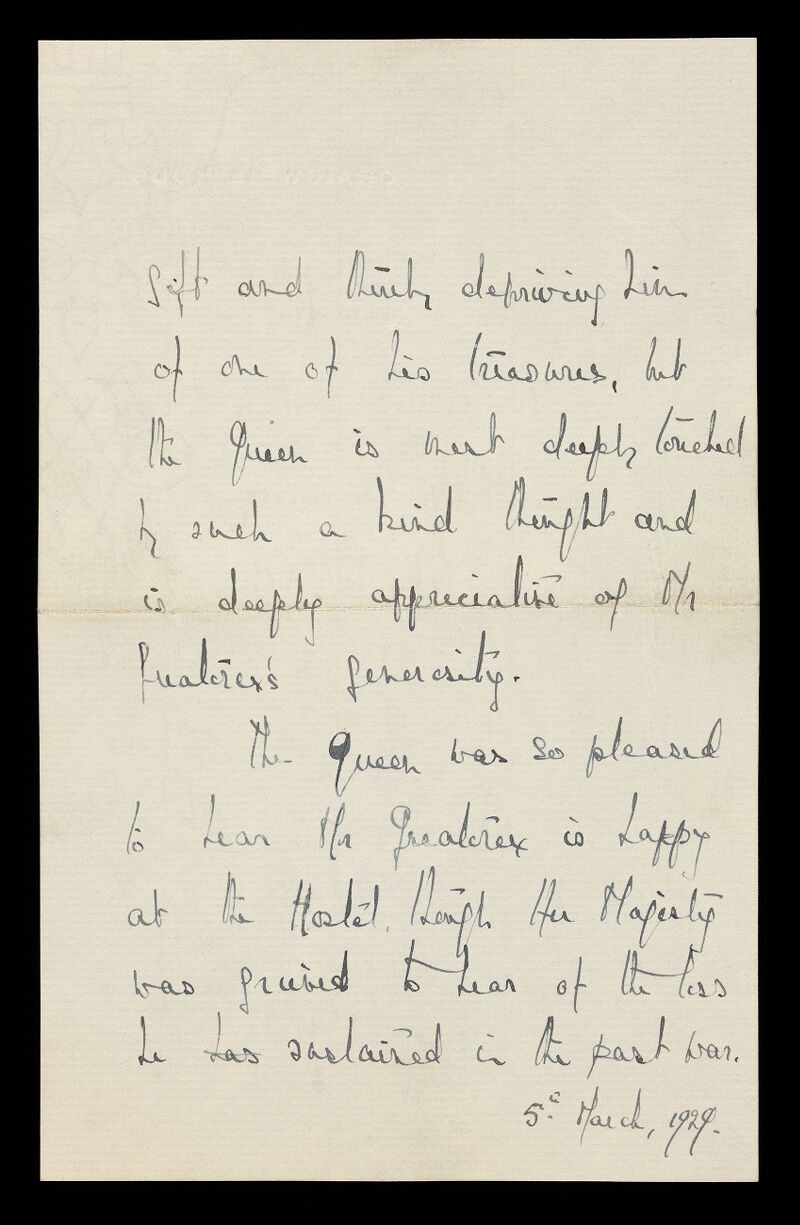 gift and thereby depriving him
of one of his treasures, but
the Queen is most deeply touched
by such a kind thought and
is deeply appreciative of Mr
Greatorex's generosity.
The Queen was so pleased
to hear Mr Greatorex is happy
at the Hostel, though Her Majesty
was grieved to hear of the loss
he has sustained in the past war.
5th March, 1929.